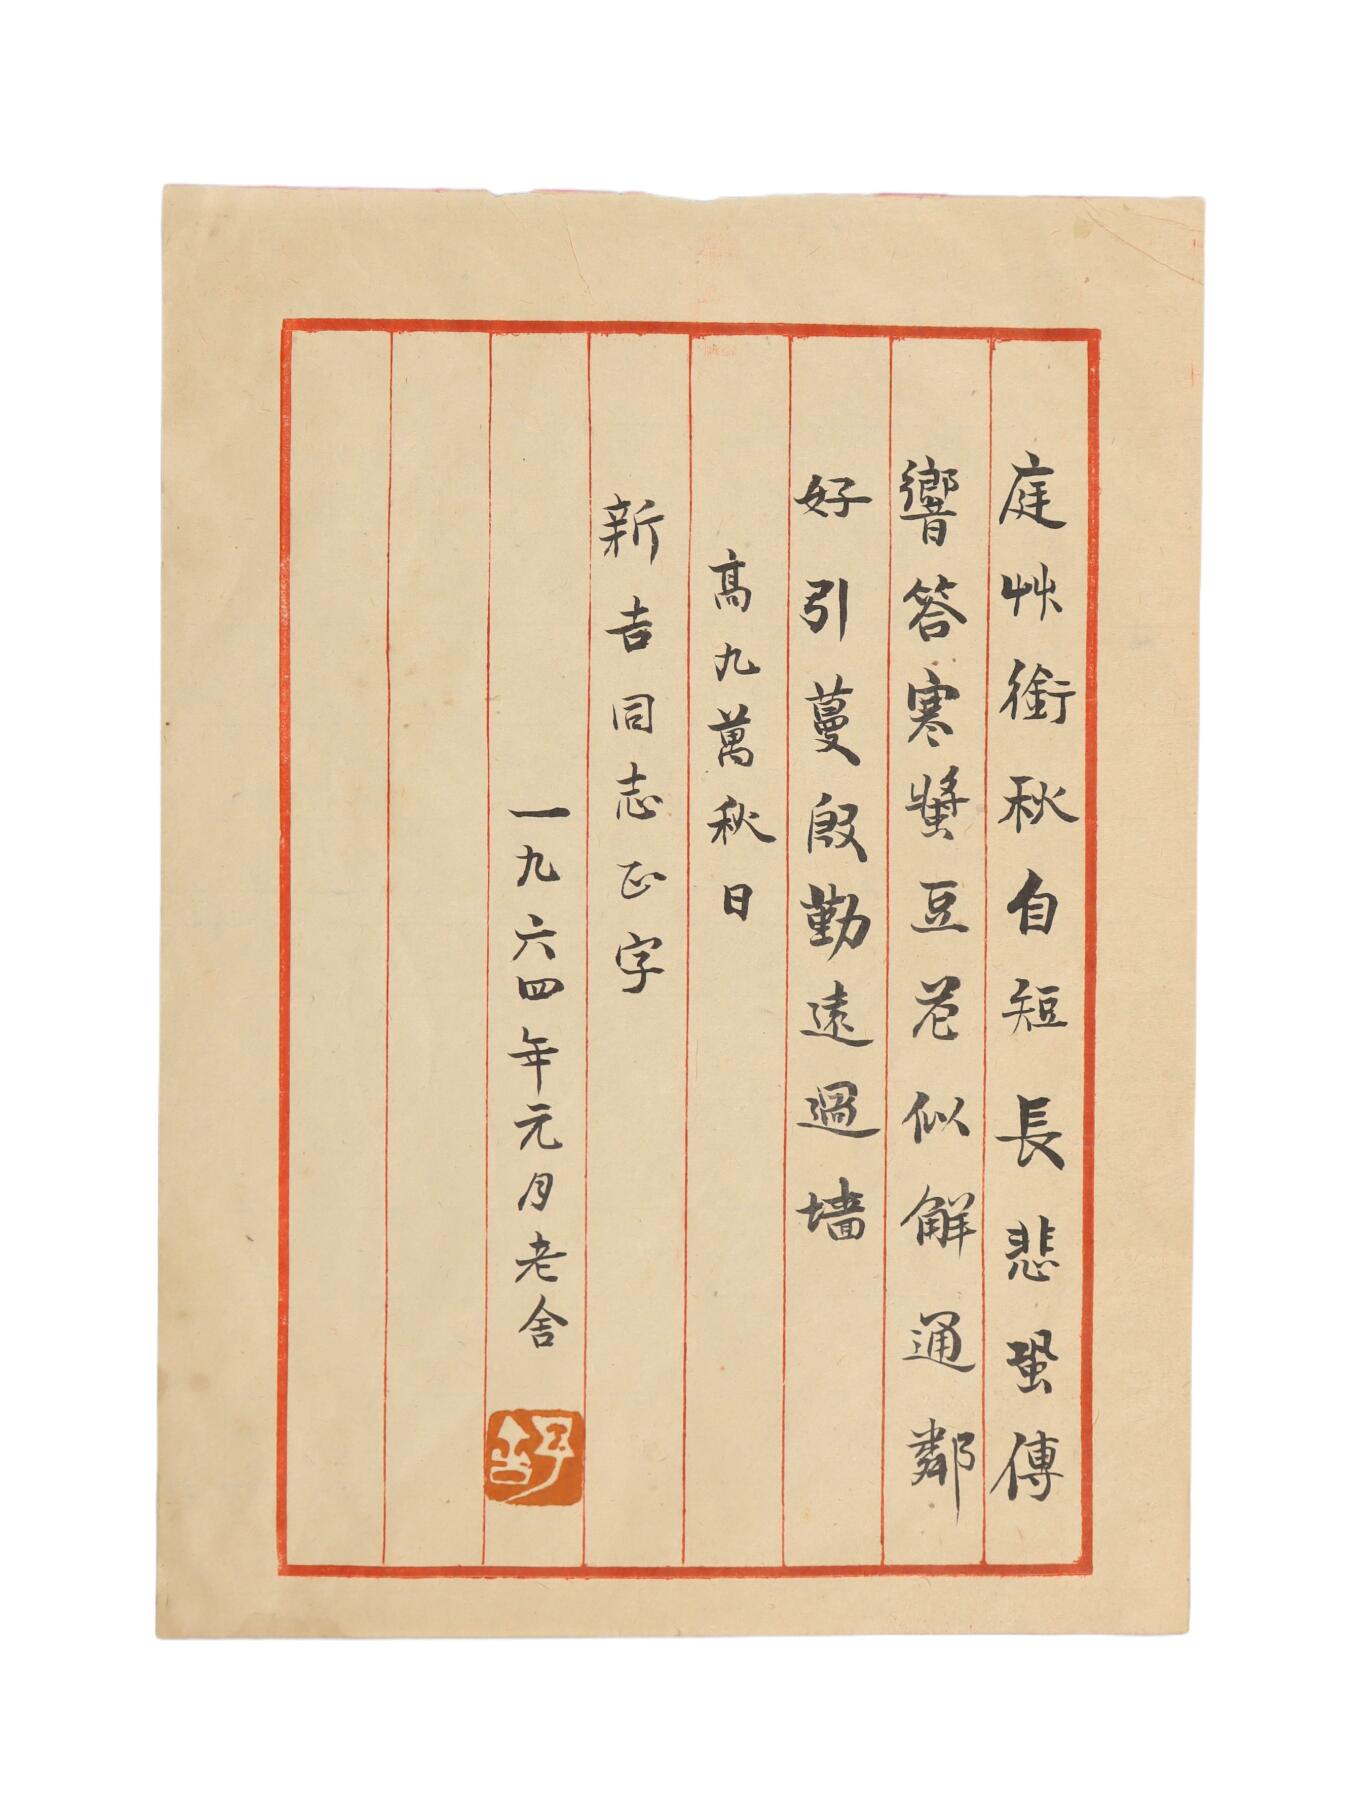 庭艸銜秋自短長悲蛩傳
響答寒螿豆花似解通鄰
好引蔓殷勤遠過墙
高九萬秋日
新吉同志正字
一九六四年元月老舍
舒舍